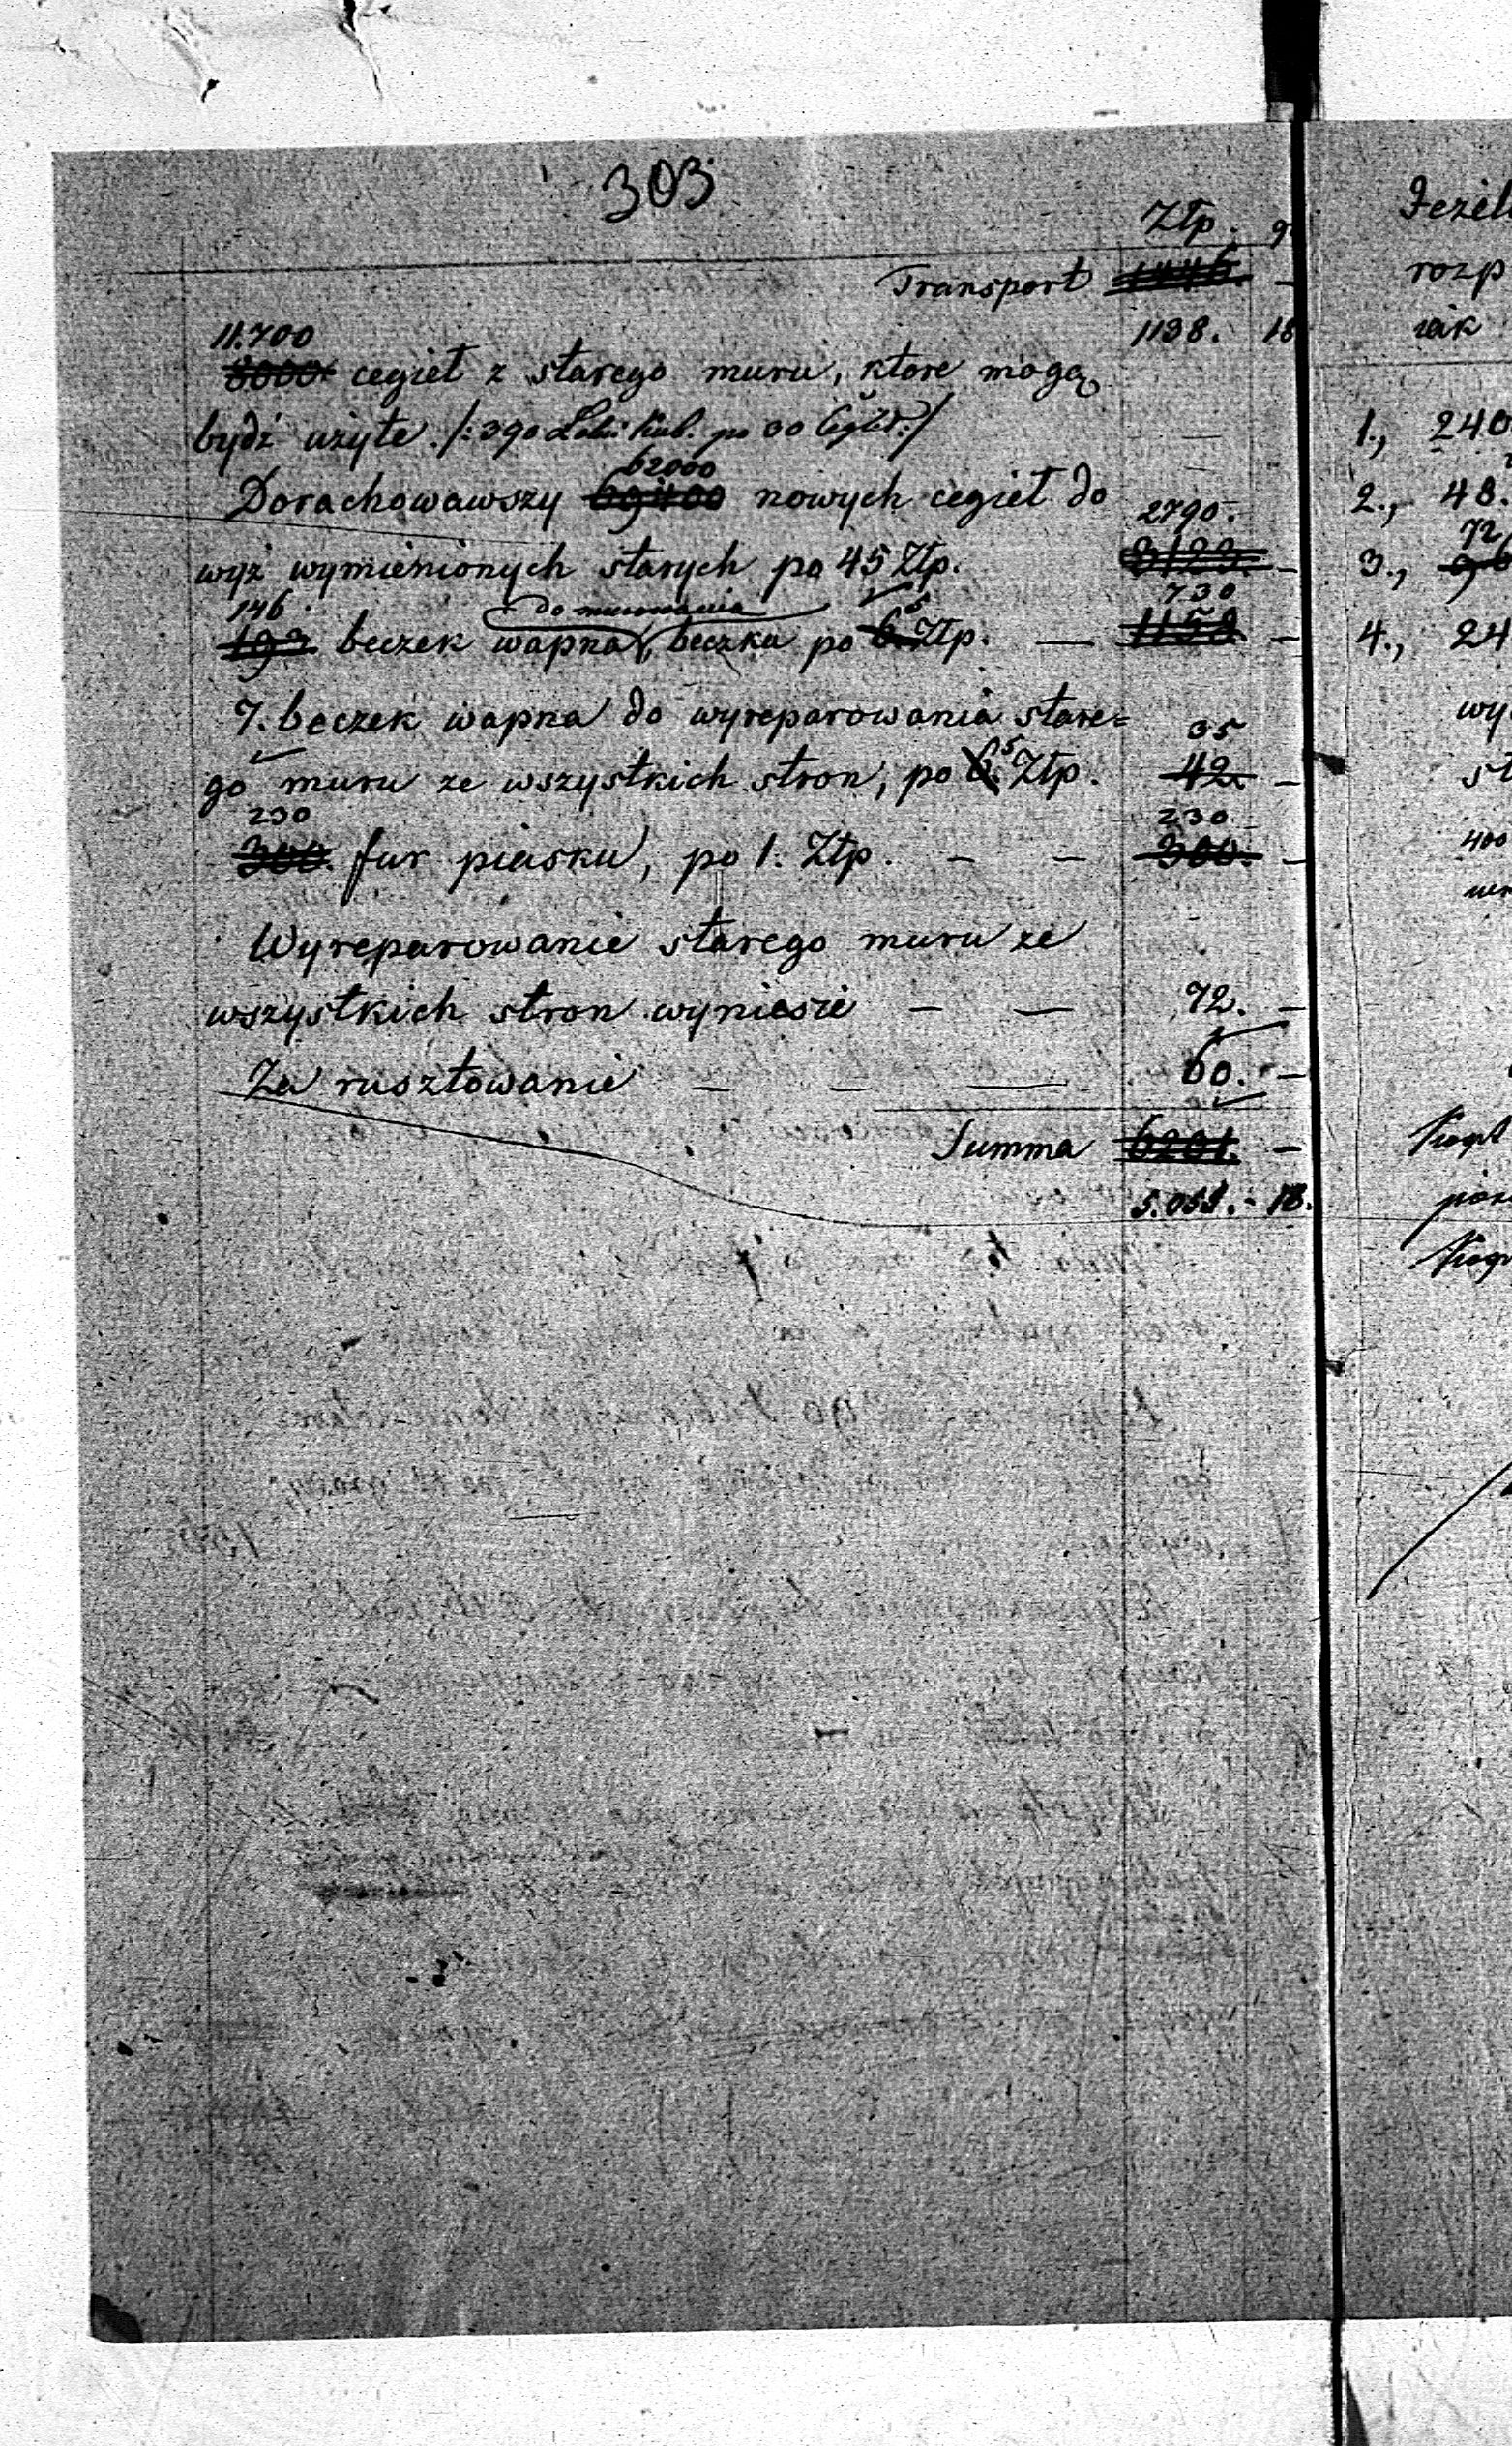 303
Złp. g
Transport 1446. –
1138. 18
11.700
8000. cegieł z starego muru, ktore mogą
bydź użyte. /: 390 Łokci Kub. po 30 Cegieł :/ —
62000
Dorachowawszy 69400 nowych cegieł do 2790.
wyż wymienionych starych po 45 Złp. 3123. –
146. do murowania 5 730
193 beczek wapna, beczka po 6 Złp. — 1158 –
7. beczek wapna do wyreparowania stare= 35
go muru ze wszystkich stron, po 6. 5 Złp. 42. –
230 230
300. fur piasku, po 1. Złp. – – 300. –
Wyreparowanie starego muru ze
wszystkich stron wyniesie – — 72. –
Za rusztowanie – – — 60. –
Summa 6201. –
5.055. - 18.
Jeżel
rozp
1., 240
2., 48
72
3.,
4., 24
wy
st
400